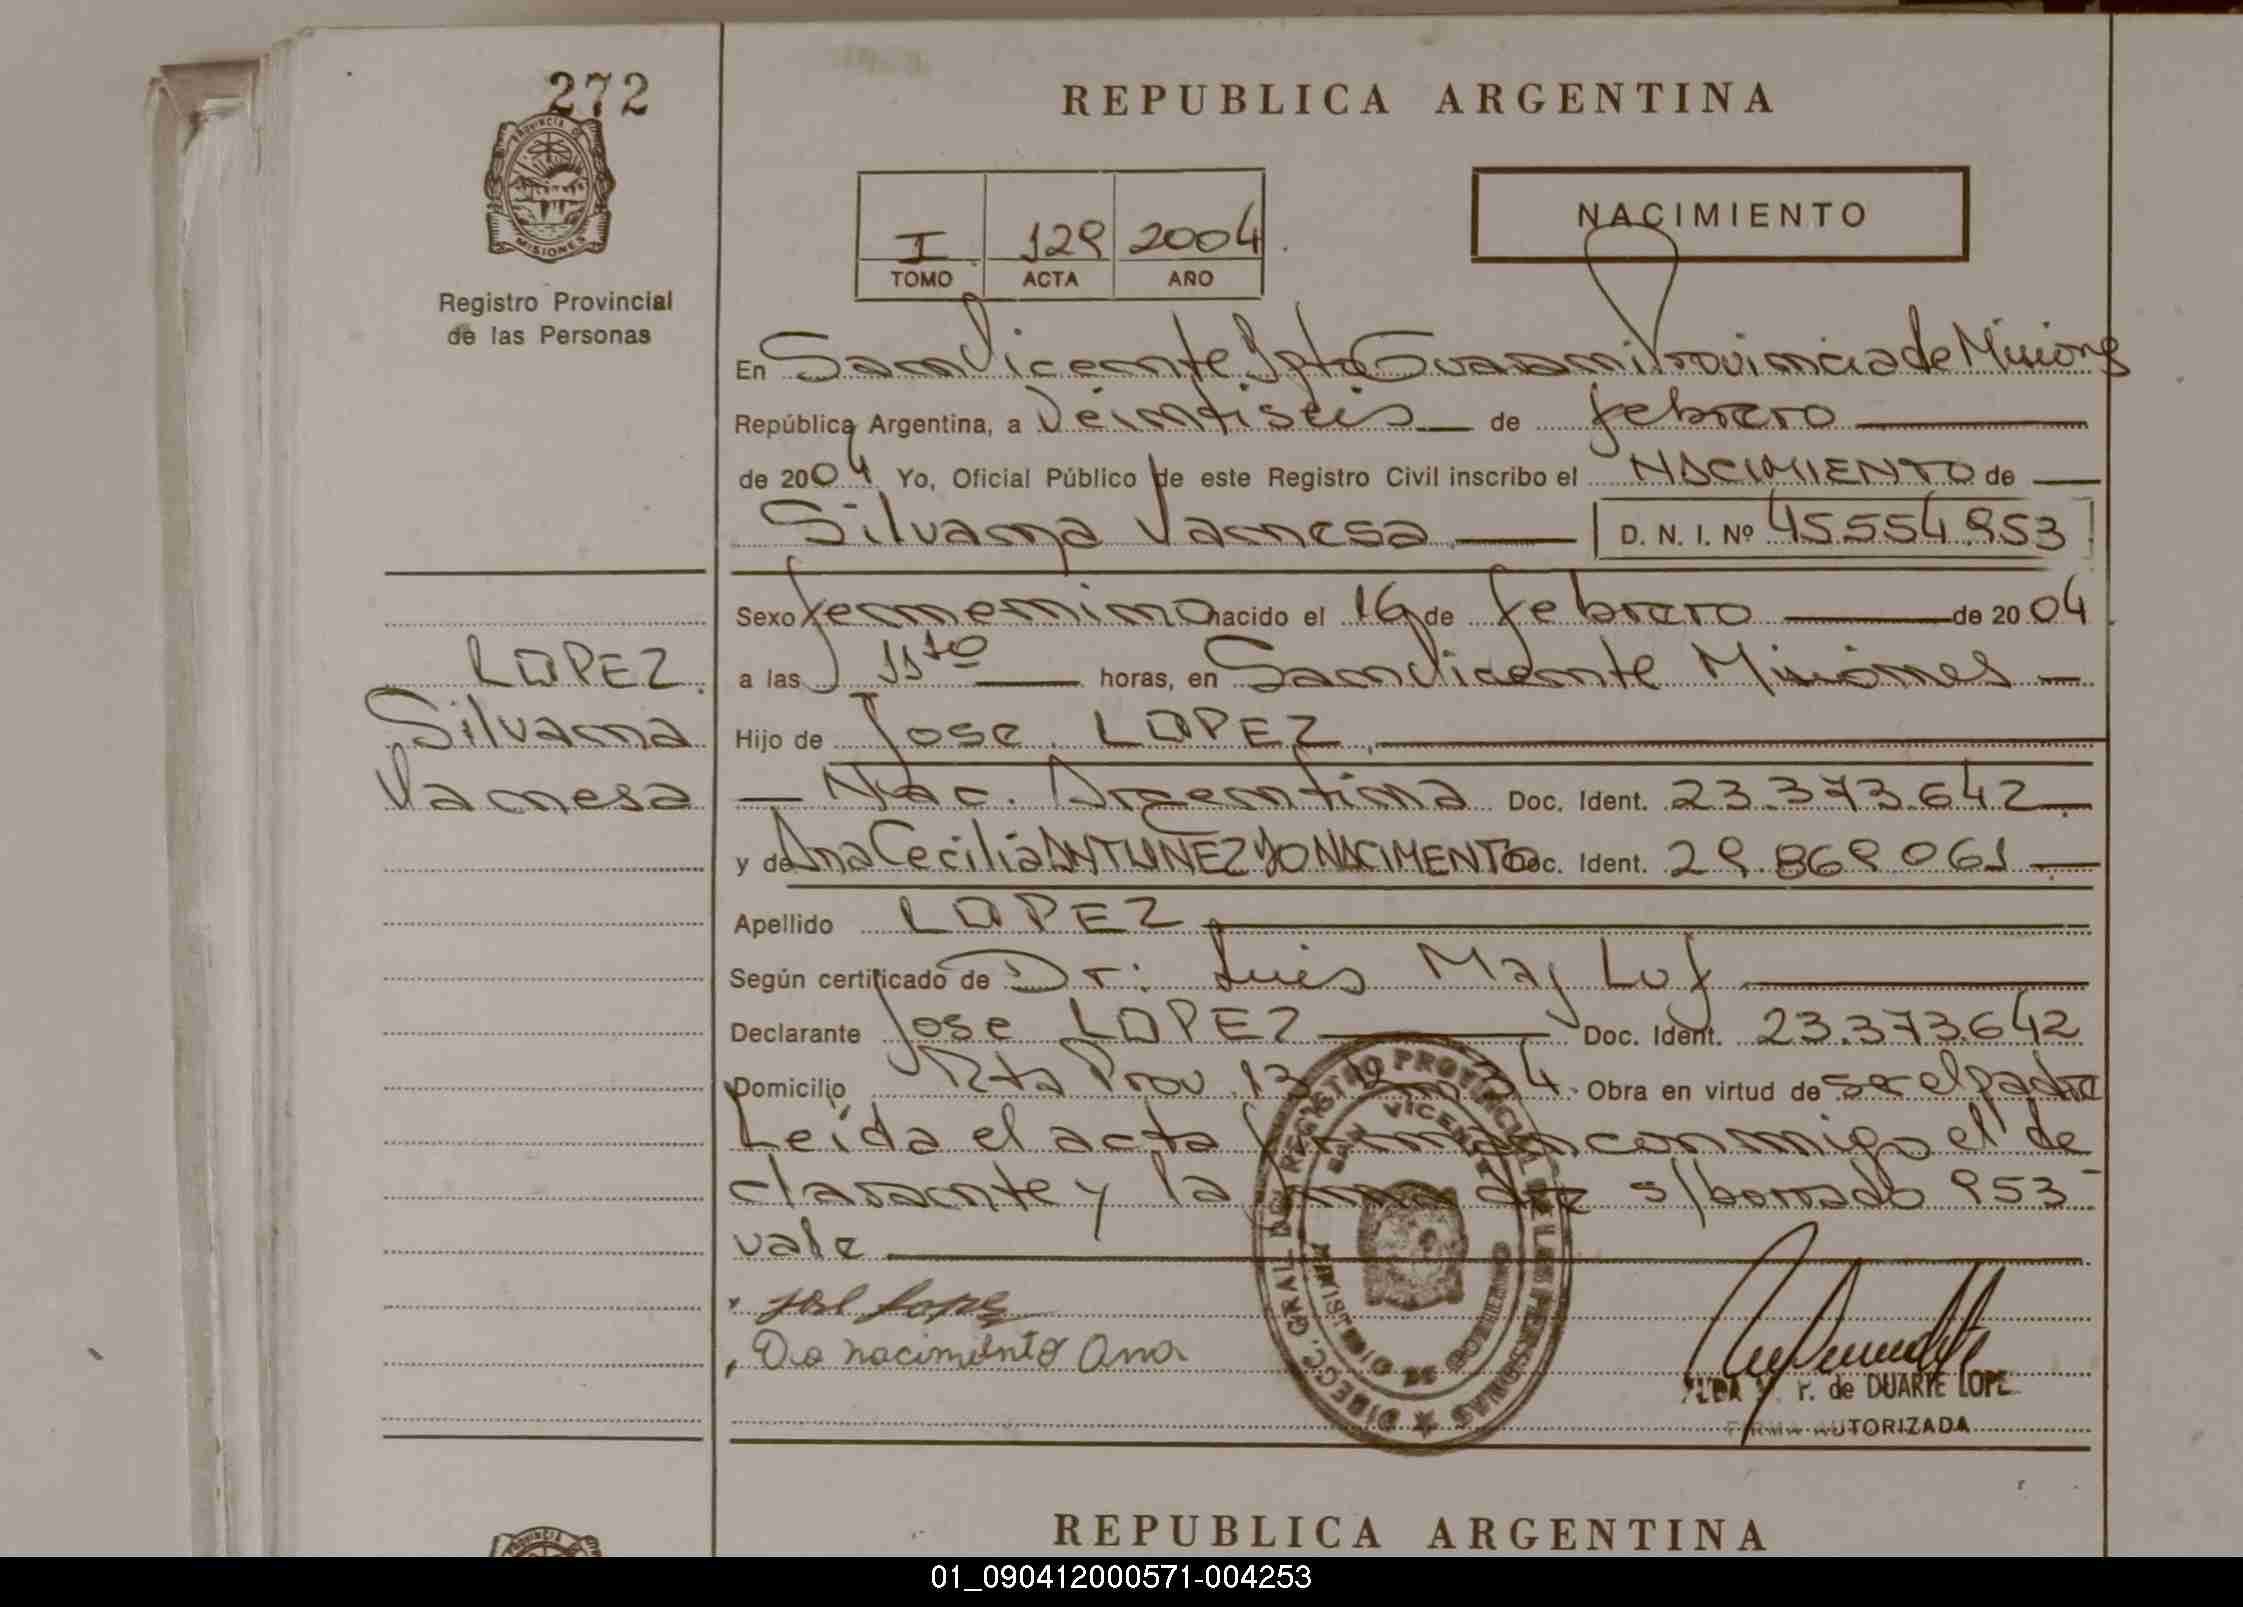 272
PROVINCIA DE
MISIONES
Registro Provincial
de las Personas
REPUBLICA ARGENTINA
I 129 2004
TOMO ACTA AÑO
NACIMIENTO
En San Vicente Dpto Guarani Provincia de Misiones
República Argentina, a Veintiseis de febrero
de 2004 Yo, Oficial Público de este Registro Civil inscribo el NACIMIENTO de
Silvana Vanesa D. N. I. Nº 45554.953
Sexo femenino nacido el 16 de febrero de 2004
a las 11 10 horas, en San Vicente Misiones
Hijo de Jose LOPEZ
Nac. Argentina Doc. Ident. 23.373.642
y de Ana Cecilia ANTUNEZ DO NACIMENTO Doc. Ident. 29.869.061
Apellido LOPEZ
Según certificado de Dr: Luis Maj Luf
Declarante Jose LOPEZ Doc. Ident. 23.373.642
Domicilio Rta Prov. 13 Km 34. Obra en virtud de ser el padre
Leida el acta firman conmigo el de
clarante y la madre s/borrado 953
vale
LOPEZ
Silvana
Vanesa
Jose Lopez
Do nacimento Ana
DIRECC. GRAL. DEL REGISTRO PROVINCIAL DE LAS PERSONAS
SAN VICENTE
MINIST. DE GOBIERNO
de DUARTE LOPE
FIRMA AUTORIZADA
REPUBLICA ARGENTINA
01_090412000571-004253